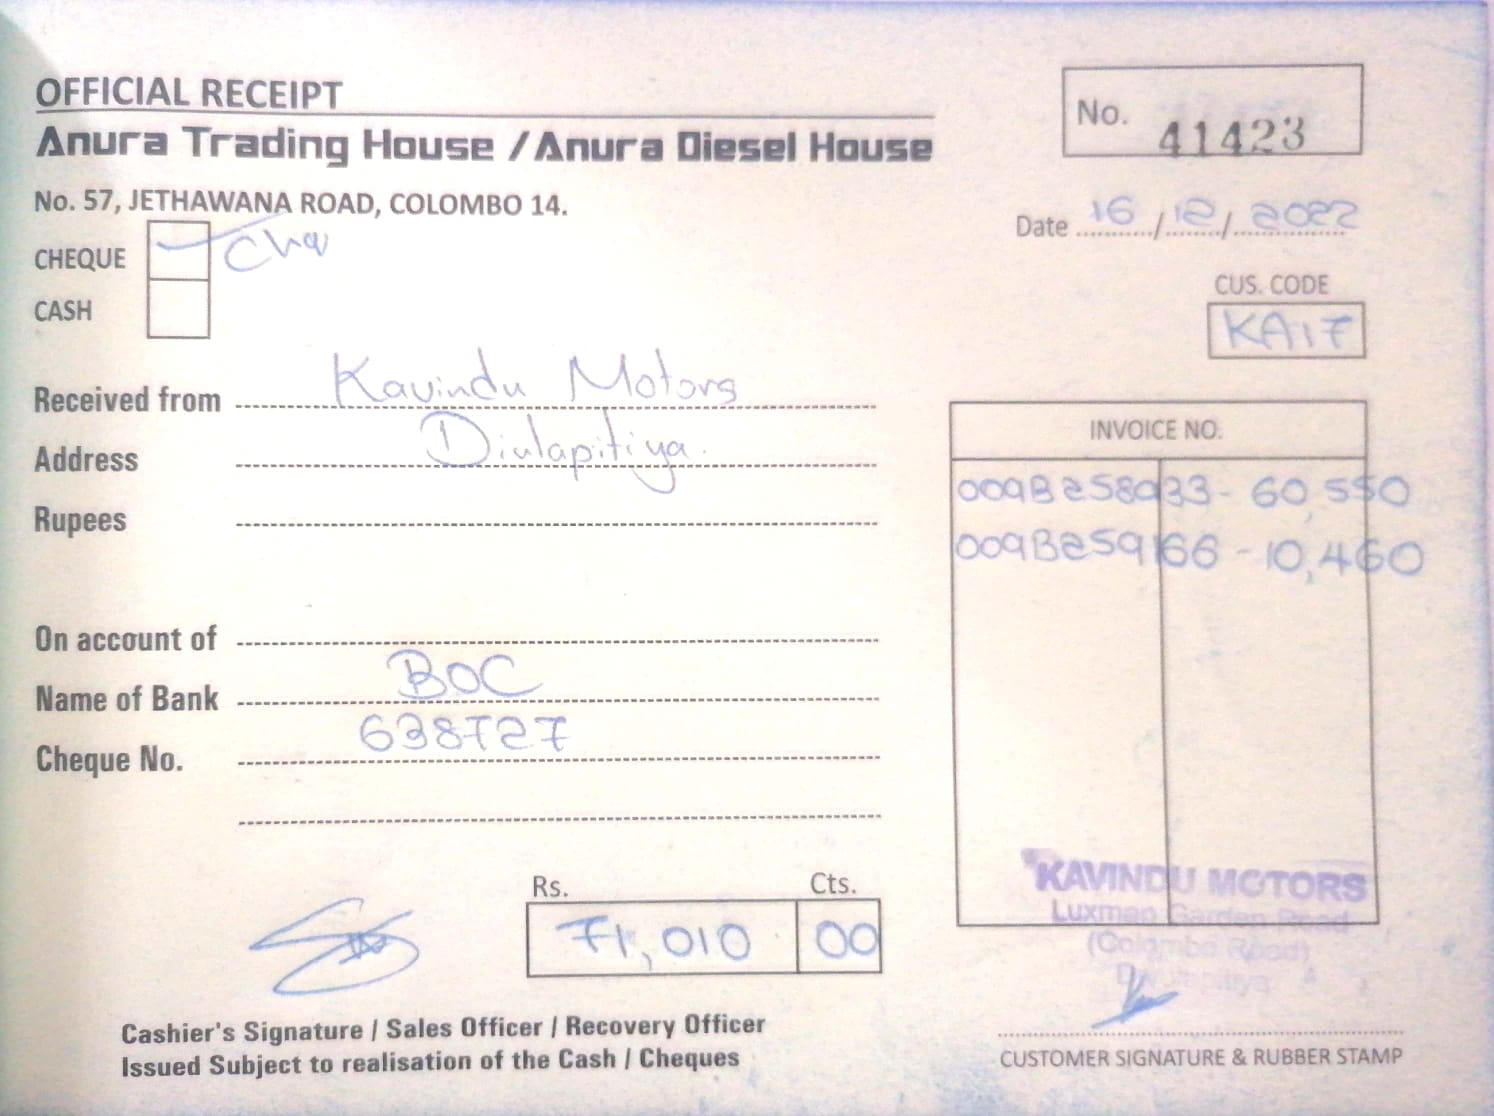 OFFICIAL RECEIPT
Anura Trading House / Anura Diesel House
No. 57, JETHAWANA ROAD, COLOMBO 14.
No. 41423
Date 16/12/2022
CHEQUE
CASH
CUS. CODE
KA17
Received from Kavindu Motors
Address Divlapitiya.
Rupees
INVOICE NO.
009B258933 - 60,550
009B259166 - 10,460
On account of
Name of Bank BOC
Cheque No. 638727
Rs. Cts.
71,010 00
KAVINDU MOTORS
Luxman Garden Road
(Colombo Road)
Cashier's Signature / Sales Officer / Recovery Officer
Issued Subject to realisation of the Cash / Cheques
CUSTOMER SIGNATURE & RUBBER STAMP